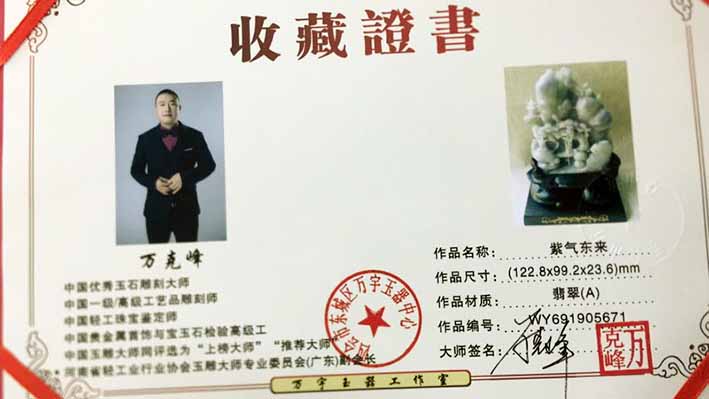 收藏證書
万克峰
中国优秀玉石雕刻大师
中国一级/高级工艺品雕刻师
中国轻工珠宝鉴定师
中国贵金属首饰与宝玉石检验高级工
中国玉雕大师网评选为“上榜大师”“推荐大师”
河南省轻工业行业协会玉雕大师专业委员会(广东)副会长
作品名称：紫气东来
作品尺寸：(122.8x99.2x23.6)mm
作品材质：翡翠(A)
作品编号：WY691905671
大师签名：
四会市东城区万宇玉器中心
万克峰
万宇玉器工作室